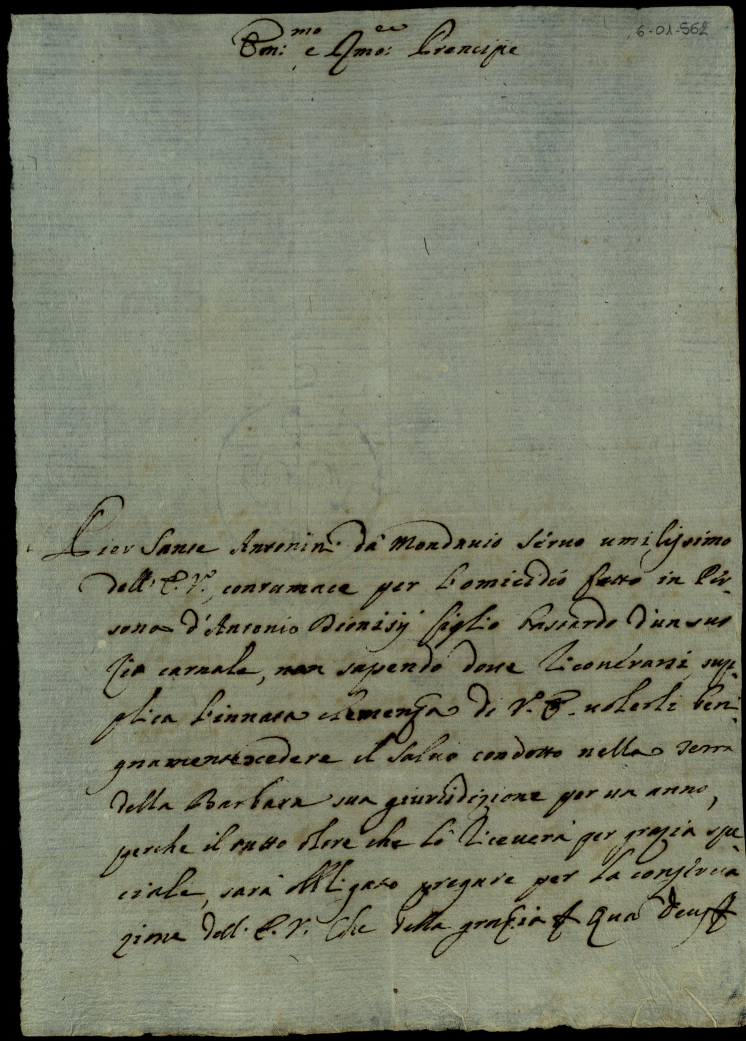 6-01-562
Em:mo e Rmo: Prencipe
Pier Sante Antonini da Mondauio seruo umilissimo
dell' E. V., contumace per l'omicidio fatto in Per-
sona d'Antonio Dionisij figlio bastardo d'un suo
Zio carnale, non sapendo doue ricourarsi, sup-
plica l'innata clemenza di V. E. uolerli beni-
gnamente cedere il saluo condotto nella Terra
della Barbara sua giurisdizione per un anno,
perche il tutto oltre che lo riceuerà per grazia spe-
ciale, sarà obligato pregare per la conserua-
zione dell' E. V. Che della grazia Qua Deus